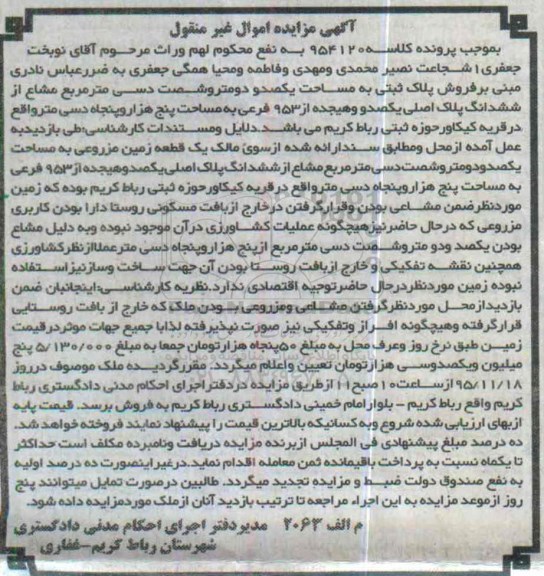 آگهی مزایده اموال غیر منقول
بموجب پرونده کلاسه ۹۵۴۱۲۰ به نفع محکوم لهم وراث مرحوم آقای نوبخت
جعفری۱شجاعت نصیر محمدی ومهدی وفاطمه ومحیا همگی جعفری به ضررعباس نادری
مبنی برفروش پلاک ثبتی به مساحت یکصدو دومتروشصت دسی مترمربع مشاع از
ششدانگ پلاک اصلی یکصدو وهیجده از۹۵۳ فرعی به مساحت پنج هزاروپنجاه دسی مترواقع
درقریه کیکاورحوزه ثبتی رباط کریم می باشد.دلایل ومستندات کارشناسی:طی بازدیدبه
عمل آمده ازمحل ومطابق سندارائه شده ازسوی مالک یک قطعه زمین مزروعی به مساحت
یکصدودومتروشصت دسی مترمربع مشاع ازششدانگ پلاک اصلی یکصدوهیجده از۹۵۳ فرعی
به مساحت پنج هزاروپنجاه دسی مترواقع درقریه کیکاورحوزه ثبتی رباط کریم بوده که زمین
موردنظرضمن مشاعی بودن وقرارگرفتن درخارج ازبافت مسکونی روستا دارا بودن کاربری
مزروعی که درحال حاضرنیزهیچگونه عملیات کشاورزی درآن موجود نبوده وبه دلیل مشاع
بودن یکصد ودو متروشصت دسی مترمربع ازپنج هزاروپنجاه دسی مترعملاازنظرکشاورزی
همچنین نقشه تفکیکی و خارج ازبافت روستا بودن آن جهت ساخت وسازنیزاستفاده
نبوده زمین موردنظردرحال حاضرتوجیه اقتصادی ندارد.نظریه کارشناسی:اینجانبان ضمن
بازدیدازمحل موردنظرگرفتن مشاعی ومزروعی بودن ملک که خارج از بافت روستایی
قرارگرفته وهیچگونه افراز وتفکیکی نیز صورت نپذیرفته لذابا جمیع جهات موثردرقیمت
زمین طبق نرخ روز وعرف محل به مبلغ ۵۰پنجاه هزارتومان جمعا به مبلغ ۵/۱۳۰/۰۰۰ پنج
میلیون ویکصدوسی هزارتومان تعیین واعلام میگردد. مقررگردیده ملک موصوف درروز
۹۵/۱۱/۱۸ ازساعت۱۰صبح۱۱ازطریق مزایده دردفتراجرای احکام مدنی دادگستری رباط
کریم واقع رباط کریم - بلوارامام خمینی دادگستری رباط کریم به فروش برسد. قیمت پایه
ازبهای ارزیابی شده شروع وبه کسانیکه بالاترین قیمت را پیشنهاد نمایند فروخته خواهد شد.
ده درصد مبلغ پیشنهادی فی المجلس ازبرنده مزایده دریافت ونامبرده مکلف است حداکثر
تا یکماه نسبت به پرداخت باقیمانده ثمن معامله اقدام نماید.درغیراینصورت ده درصد اولیه
به نفع صندوق دولت ضبط و مزایده تجدید میگردد. طالبین درصورت تمایل میتوانند پنج
روز ازموعد مزایده به این اجراء مراجعه تا ترتیب بازدید آنان ازملک موردمزایده داده شود.
م الف ۲۰۶۳ مدیردفتر اجرای احکام مدنی دادگستری
شهرستان رباط کریم-غفاری